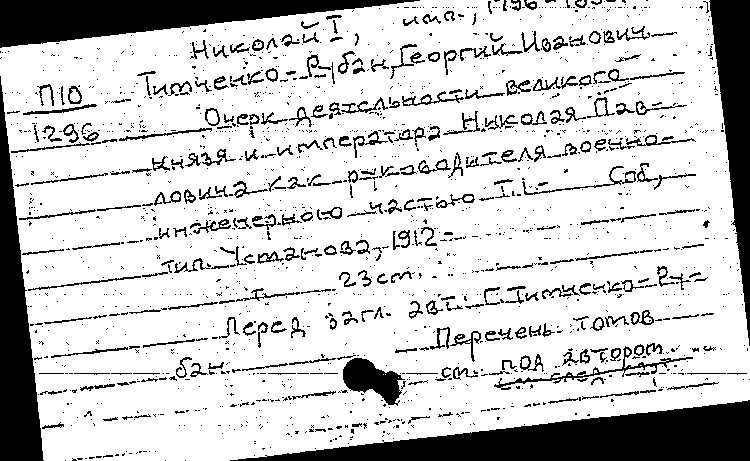 Николай I, имп., 1796-1855.
П10 Тимченко-Рубан, Георгий Иванович
1296 Очерк деятельности великого
князя и императора Николая Пав-
ловича как руководителя военно-
инженерною частью Т.1- Спб,
тип. Усманова, 1912-
т. 23см.
Перед загл. авт.: Г. Тимченко-Ру-
бан Перечень томов
см. под автором